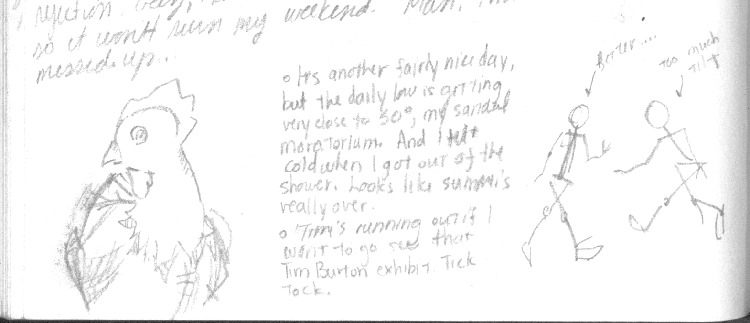 rejection.
so it won't ruin my weekend. Man,
messed up...
o Its another fairly nice day,
but the daily low is getting
very close to 50°, my sandal
moratorium. And I felt
cold when I got out of the
shower. Looks like summer's
really over.
o Time's running out if I
want to go see that
Tim Burton exhibit. Tick
Tock.
Better....
too much
tilt